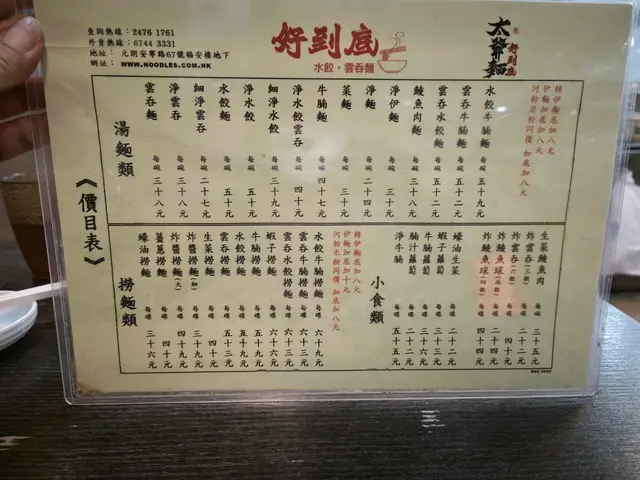 查詢熱線：2476 1761
外賣熱線：6744 3331
地址： 元朗安寧路67號福安樓地下
網址： WWW.NOODLES.COM.HK
好到底
水餃。雲吞麵
太爺麵
好到底
《價目表》
湯麵類
雲吞麵 每碗 三十八元
淨雲吞 每碗 三十八元
細淨雲吞 每碗 二十七元
水餃麵 每碗 五十元
淨水餃 每碗 五十元
細淨水餃 每碗 三十九元
淨水餃雲吞 每碗 四十元
牛腩麵 每碗 四十七元
菜麵 每碗 三十元
淨麵 每碗 二十四元
淨伊麵 每碗 三十元
鯪魚肉麵 每碗 三十八元
雲吞水餃麵 每碗 五十元
雲吞牛腩麵 每碗 五十二元
水餃牛腩麵 每碗 五十九元
轉伊麵底加八元
伊麵加底加八元
河粉米粉同價 加底加八元
撈麵類
蠔油撈麵 每碟 三十六元
薑蔥撈麵 每碟 四十元
炸醬撈麵(大) 每碟 四十九元
炸醬撈麵(細) 每碟 三十九元
生菜撈麵 每碟 四十元
水餃撈麵 每碟 五十三元
雲吞撈麵 每碟 五十元
牛腩撈麵 每碟 五十九元
蝦子撈麵 每碟 六十六元
雲吞水餃撈麵 每碟 六十三元
雲吞牛腩撈麵 每碟 六十元
水餃牛腩撈麵 每碟 六十九元
轉伊麵底加八元
伊麵加底加十元
河粉米粉同價 加底加八元
小食類
淨牛腩 每碟 五十五元
腩汁蘿蔔 每碟 二十二元
牛腩蘿蔔 每碟 三十三元
蝦子蘿蔔 每碟 二十三元
蠔油生菜 每碟 二十二元
炸鯪魚球(四粒) 每碟 四十四元
炸鯪魚球 每碟 二十四元
炸雲吞(六粒) 每碟 四十四元
炸雲吞(三粒) 每碟 二十二元
生菜鯪魚肉 每碗 三十五元